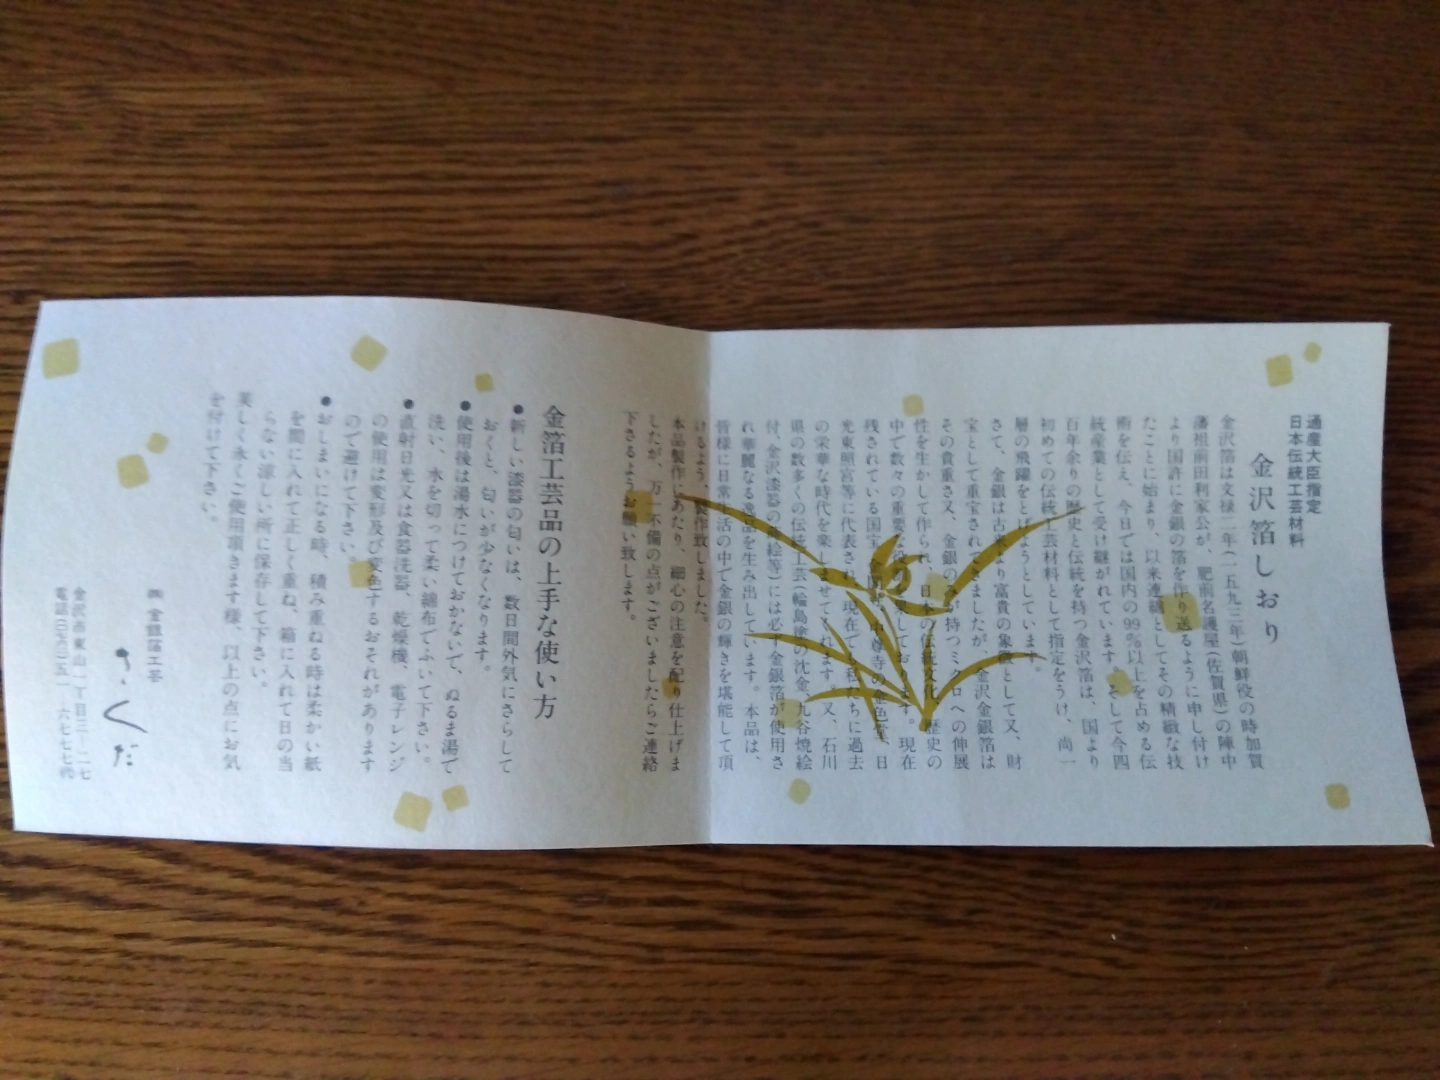 通産大臣指定
日本伝統工芸材料
金沢箔しおり
金沢箔は文禄二年(一五九三年)朝鮮役の時加賀
藩祖前田利家公が、肥前名護屋(佐賀県)の陣中
より国許に金銀の箔を作り送るように申し付け
たことに始まり、以来連綿としてその精緻な技
術を伝え、今日では国内の99%以上を占める伝
統産業として受け継がれています。そして今四
百年余りの歴史と伝統を持つ金沢箔は、国より
初めての伝統工芸材料として指定をうけ、尚一
層の飛躍をとげようとしています。
さて、金銀は古来より富貴の象徴として又、財
宝として重宝されてきましたが、金沢金銀箔は
その貴重さ又、金銀の箔が持つミクロへの伸展
性を生かして作られ、日本の伝統文化、歴史の
中で数々の重要な役割を果しております。現在
残されている国宝、金閣寺、中尊寺の金色堂、日
光東照宮等に代表され、現在でも私たちに過去
の栄華な時代を楽しませてくれます。又、石川
県の数多くの伝統工芸(輪島塗の沈金、九谷焼絵
付、金沢漆器の蒔絵等)には必ず金銀箔が使用さ
れ華麗なる逸品を生み出しています。本品は、
皆様に日常生活の中で金銀の輝きを堪能して頂
けるよう、製作致しました。
本品製作にあたり、細心の注意を配り仕上げま
したが、万一不備の点がございましたらご連絡
下さるようお願い致します。
金箔工芸品の上手な使い方
●新しい漆器の匂いは、数日間外気にさらして
おくと、匂いが少なくなります。
●使用後は湯水につけておかないで、ぬるま湯で
洗い、水を切って柔い綿布でふいて下さい。
●直射日光又は食器洗器、乾燥機、電子レンジ
の使用は変形及び変色するおそれがあります
ので避けて下さい。
●おしまいになる時、積み重ねる時は柔かい紙
を間に入れて正しく重ね、箱に入れて日の当
らない涼しい所に保存して下さい。
美しく永くご使用頂きます様、以上の点にお気
を付けて下さい。
㈱金銀箔工芸
さくだ
金沢市東山一丁目三−二七
電話(〇七六二)五一−六七七七㈹